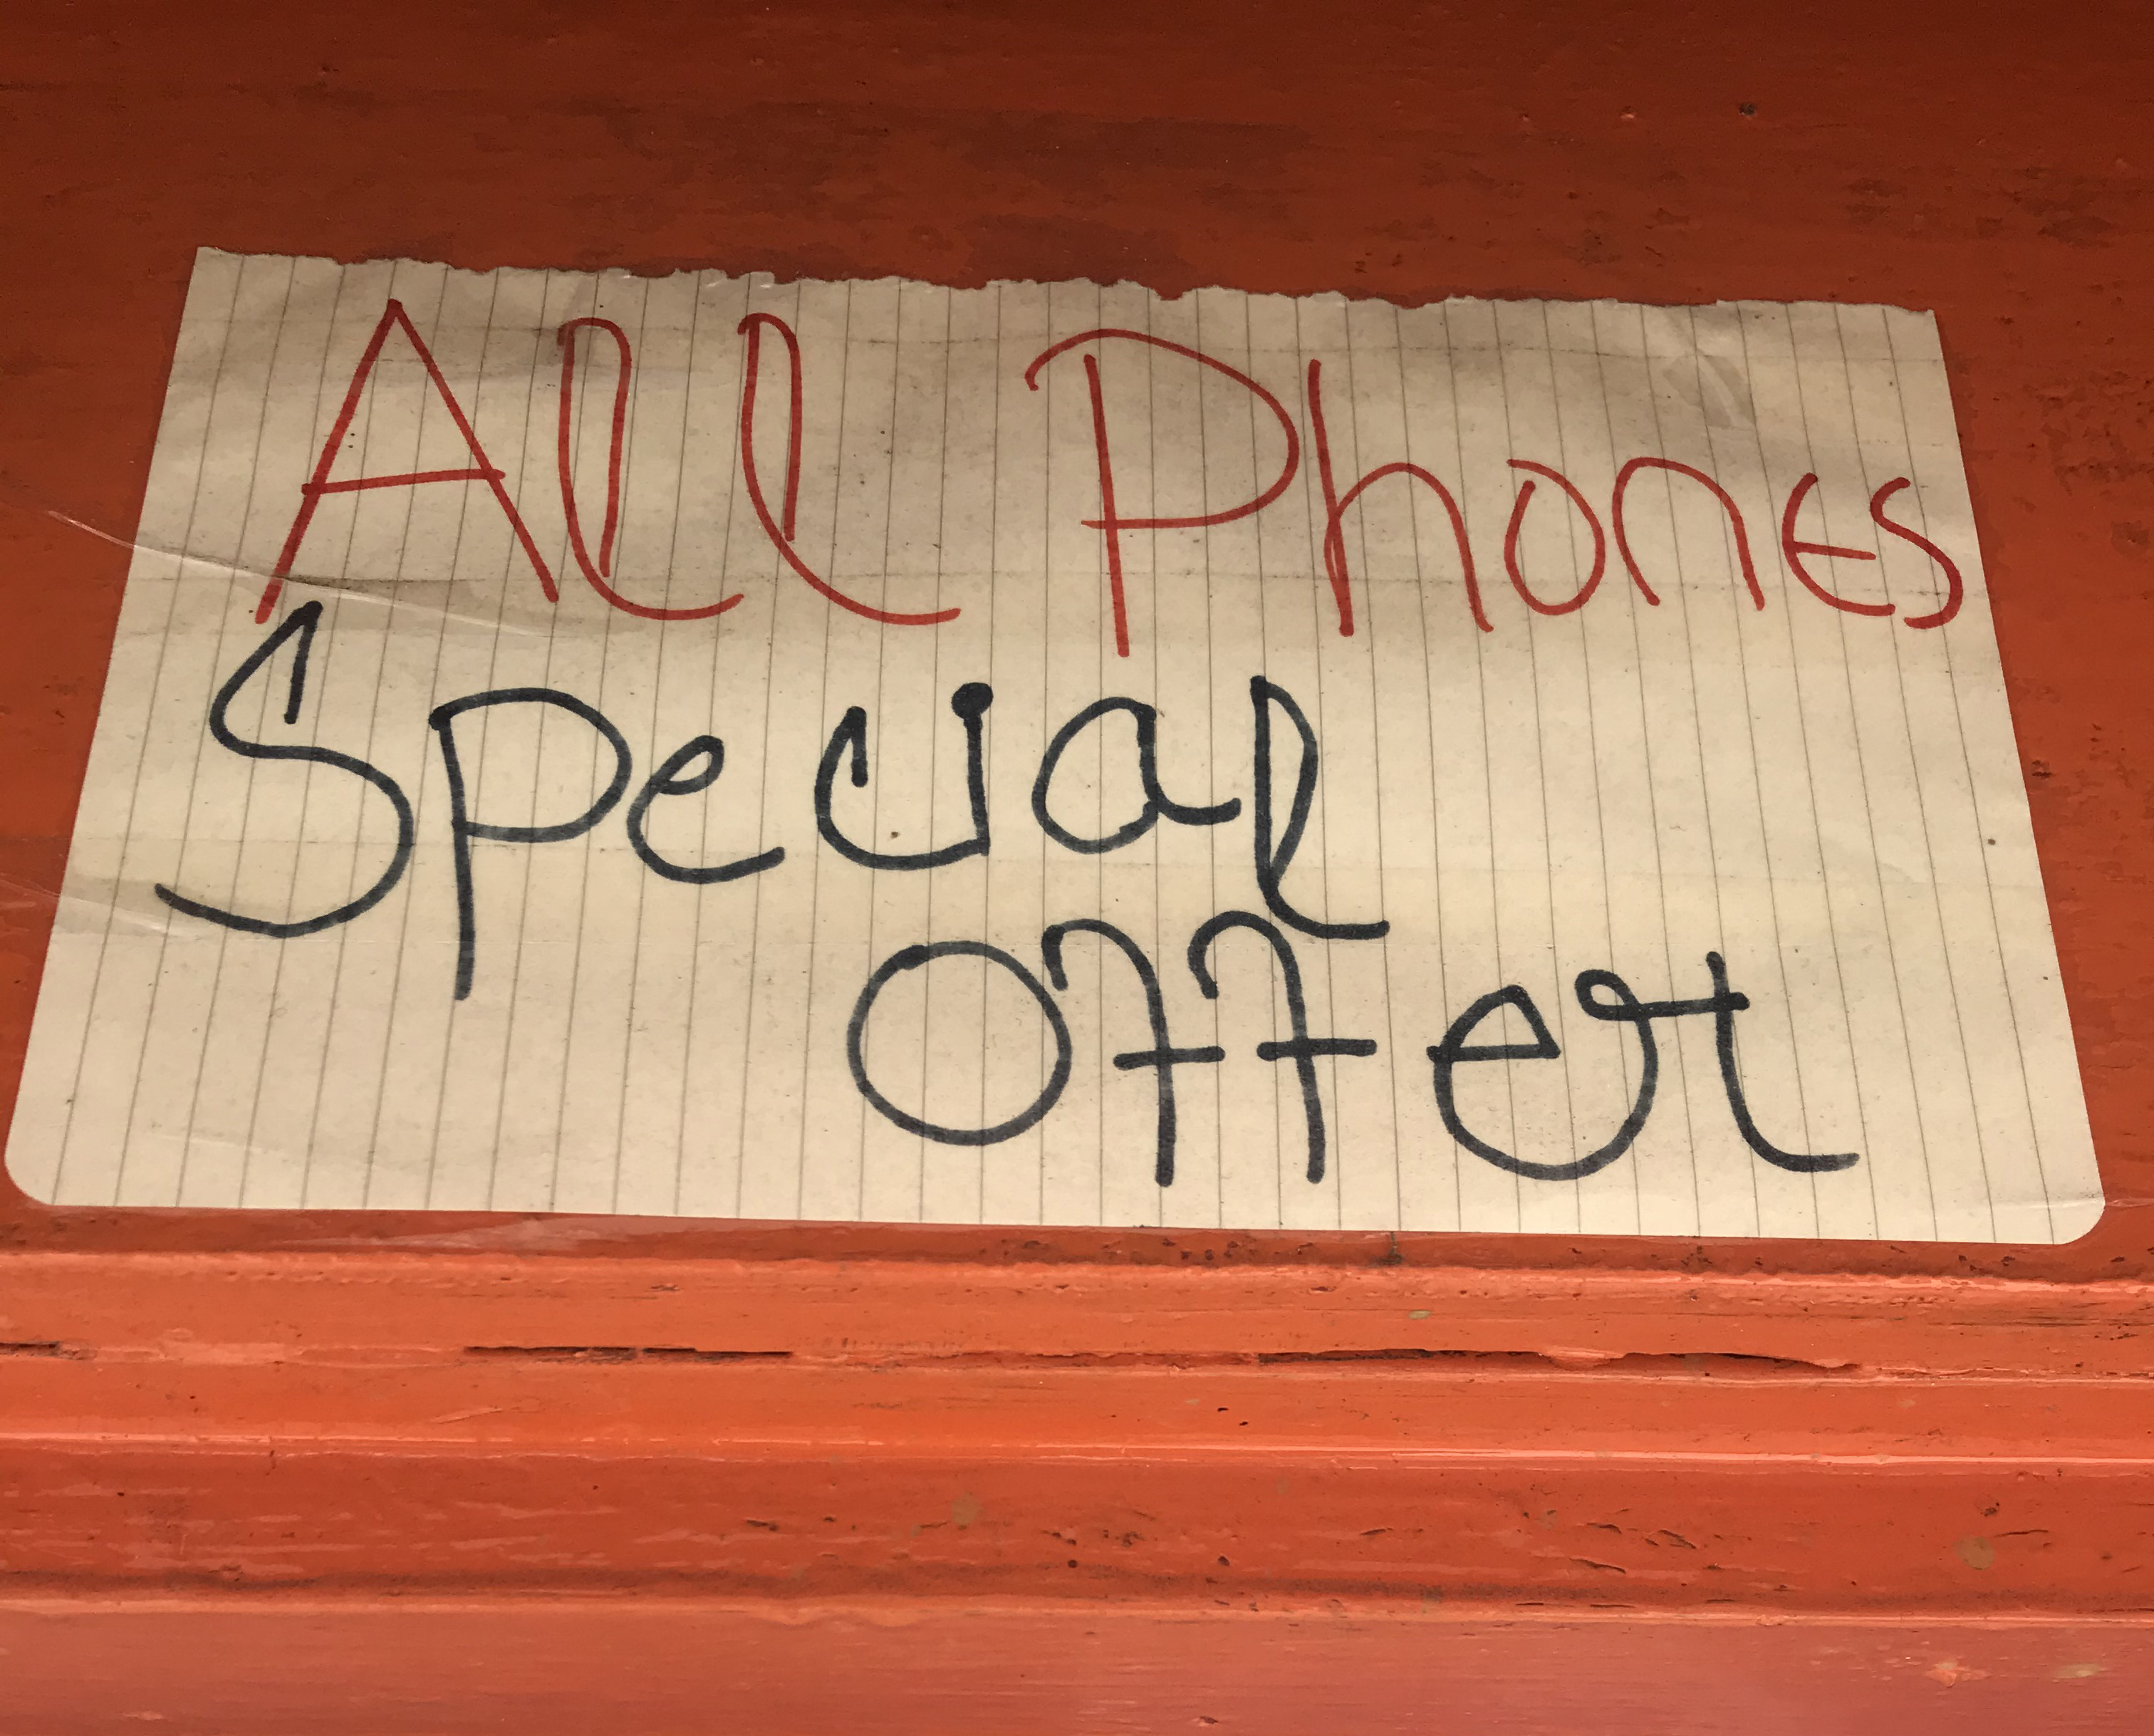 All Phones
Special
Offer